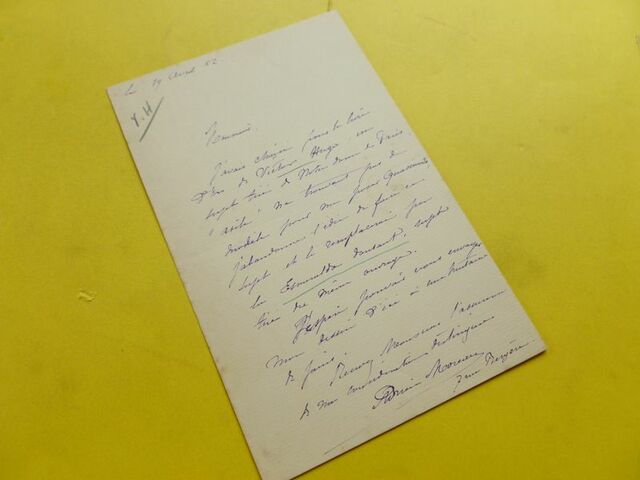 le 19 Avril 82.
V. H
Monsieur,
J'avais choisi pour le livre
d'or de Victor Hugo un
sujet tiré de Notre Dame de Paris.
"asile" Ne trouvant pas de
pour mon
j'abandonne l'idée de faire ce
sujet et le remplacerai par
la Esmeralda dansant, sujet
tiré du même ouvrage.
J'espère pouvoir vous envoyer
mon dessin d'ici à une
de jours.
Recevez Monsieur l'assurance
de ma considération distinguée
Adrien Moreau
7 rue